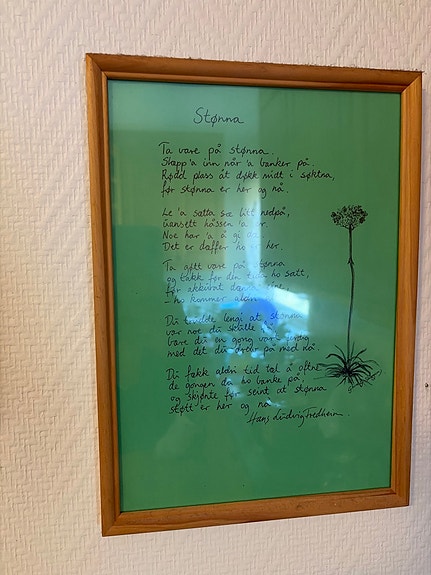 Stønna
Ta vare på stønna.
Slæpp 'a inn når 'a banker på.
Rødd plass åt døkk midt i søktna,
før stønna er her og nå.
Le 'a sætta sæ litt nedpå,
uansett håssen 'a er.
Noe har 'a å gi
Det er dæffer her.
Ta gøtt vare på stønna
og takk for din ho satt,
før akkurat
- ho kommer aldri
Du trudde lengi at stønna
var noe du skulle
bare du en gong vart ferdig
med det du dreiv på med nå.
Du fækk aldri tid tæl å øftne
de gongen da ho banke på,
og skjønte for seint at stønna
støtt er her og nå
Hans Ludvig Fredheim.